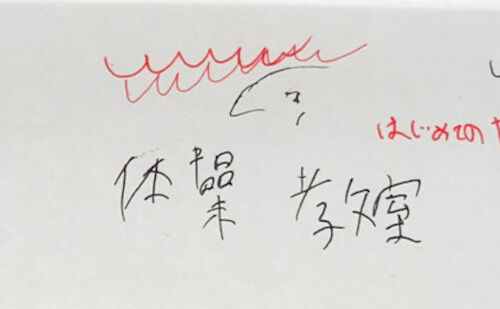 はじめての
体操 教室